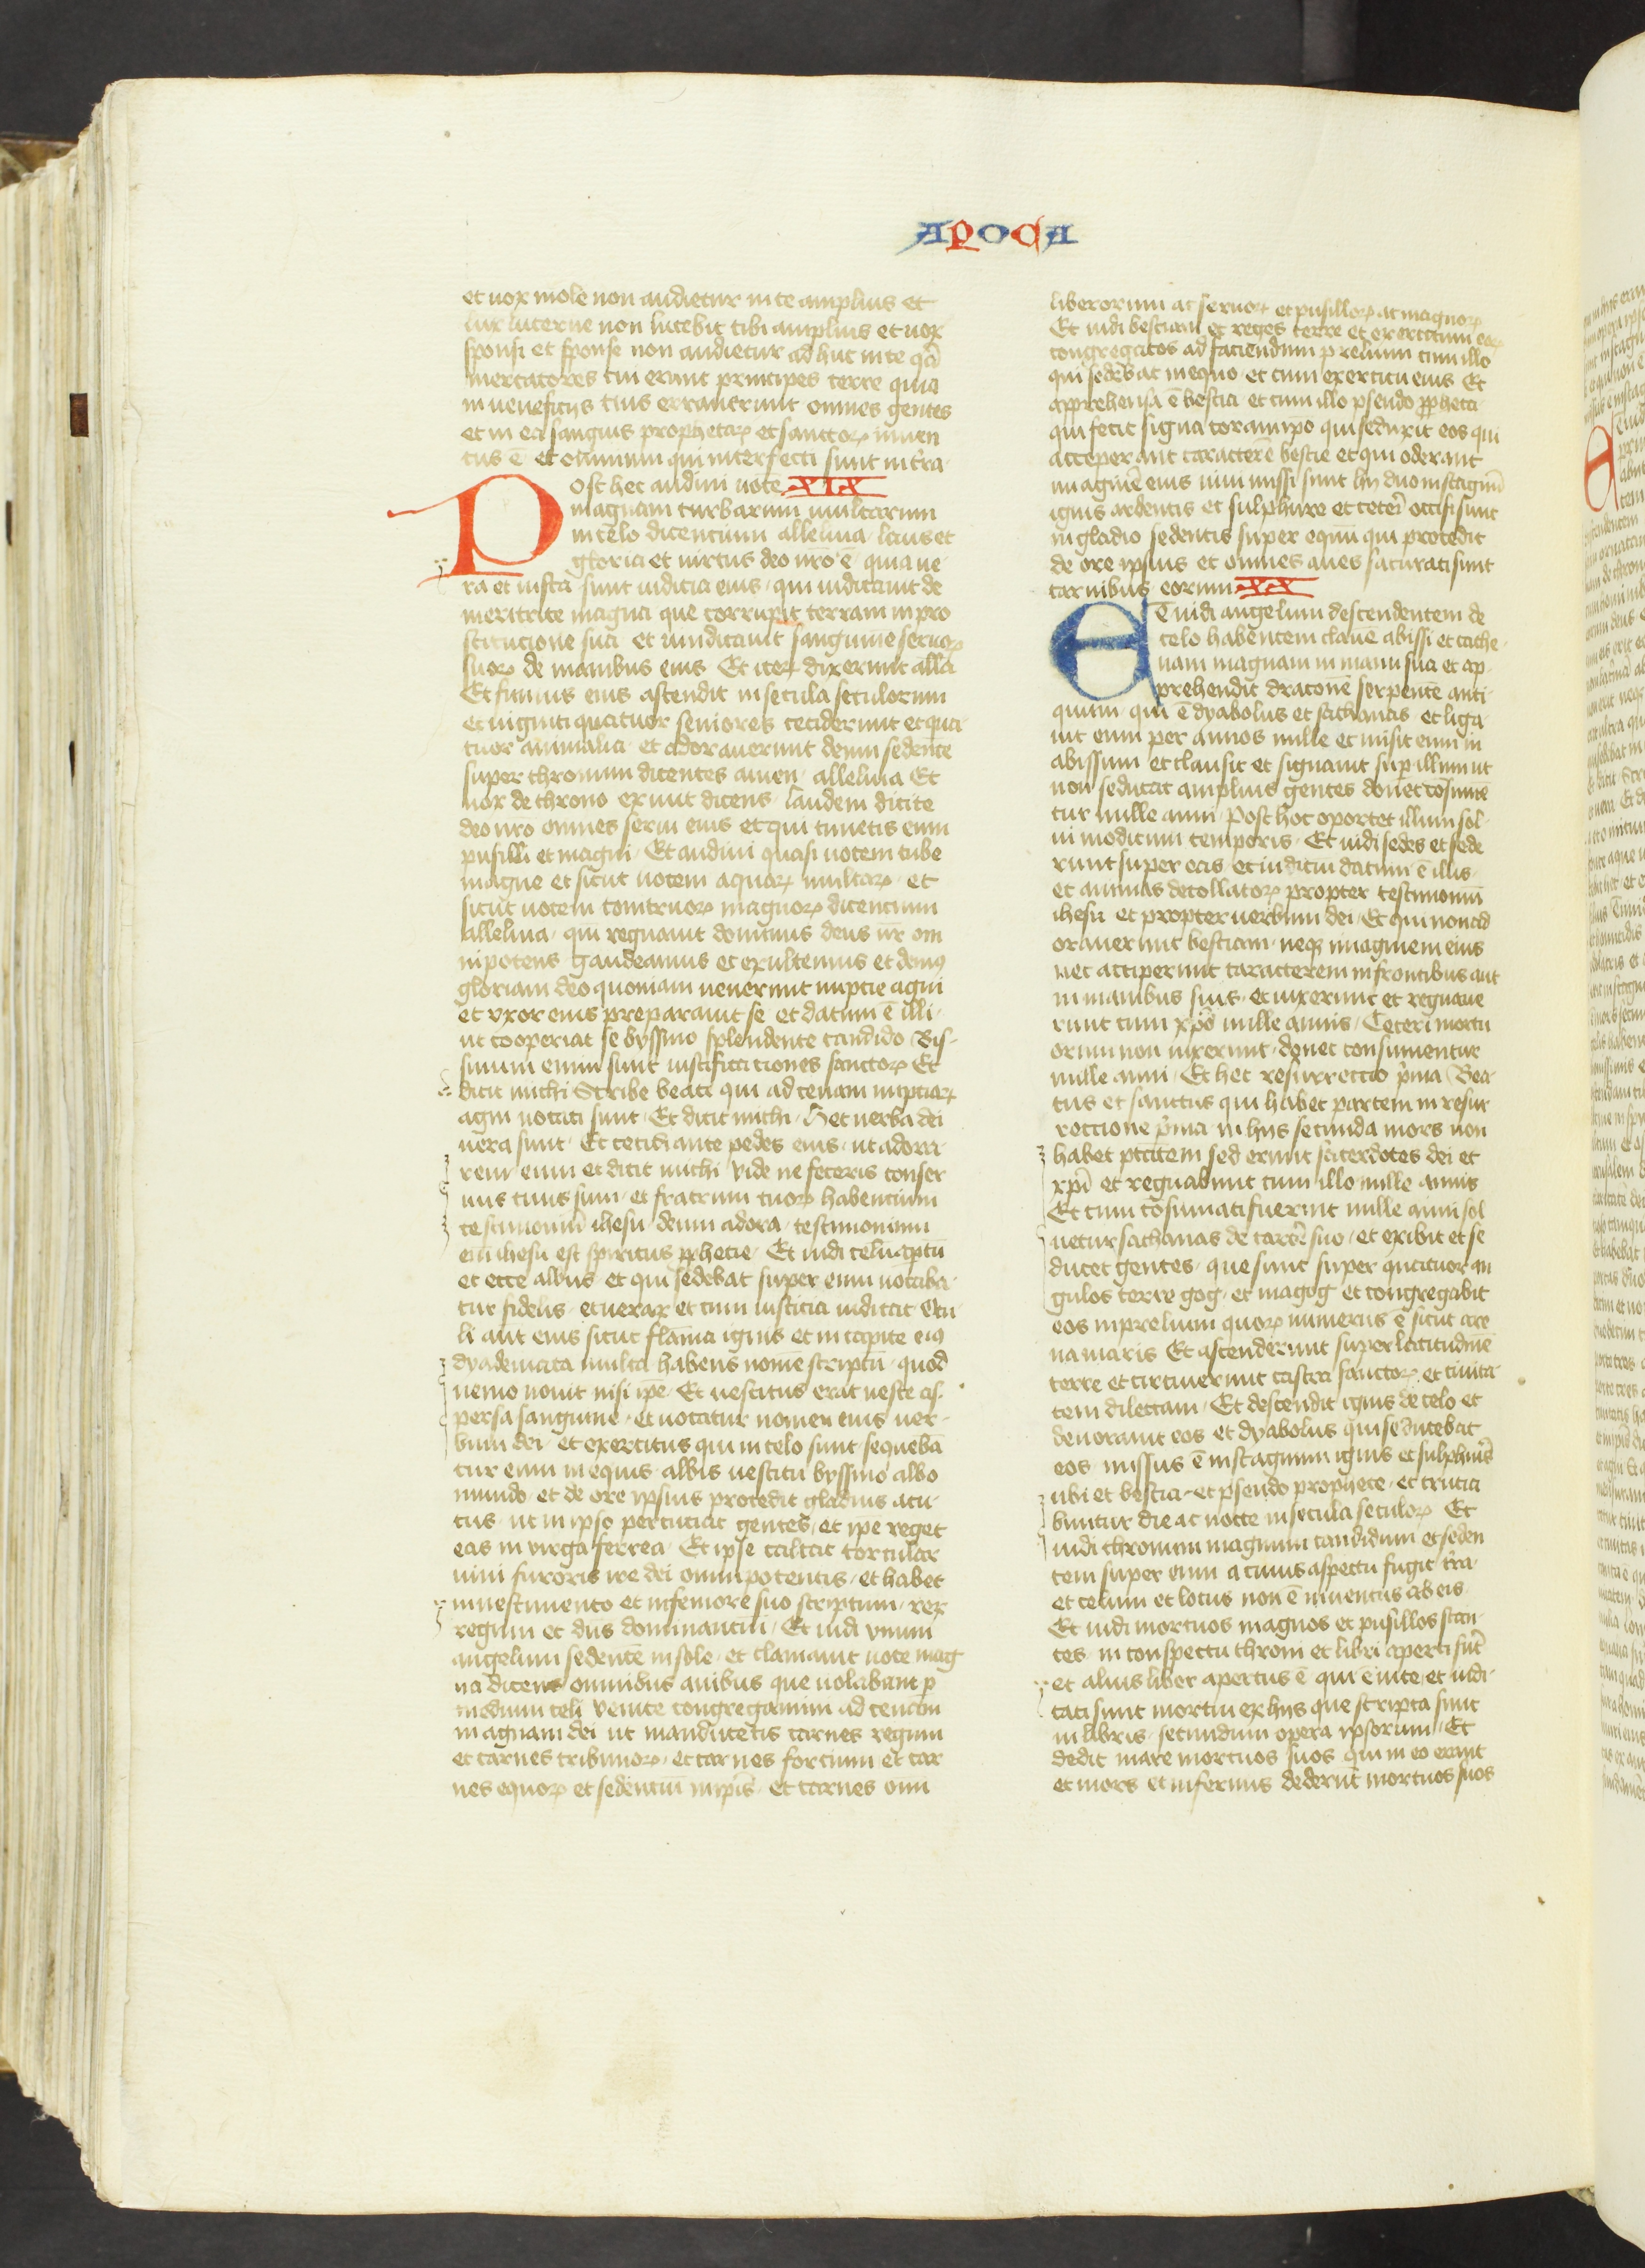 APOCA
et uox mole non audietur in te amplius et
lux lucerne non lucebit tibi amplius et uox
sponsi et sponse non audietur ad huc in te q̄a
mercatores tui erant principes terre quia
in ueneficijs tuis errauerunt omnes gentes
et in ea sanguis prophetaꝝ et sanctoꝝ inuen
tus ē et omnium qui interfecti sunt in t̄ra
Post hec audiui uocē XIX
magnam turbarum multarum
in celo dicencium alleluia laus et
gloria et uirtus deo nr̄o ē quia ue
ra et iusta sunt iudicia eius qui iudicauit de
meritrite magna que corrupit terram in pro
stitucione sua et uindicauit sanguine seruoꝝ
suoꝝ de manibus eius Et iteꝝ dixerunt alla
Et fumus eius ascendit in secula seculorum
et uiginti quatuor seniores ceciderunt et qua
tuor animalia et adorauerunt deum sedente
super thronum dicentes amen alleluia Et
uox de throno exiuit dicens laudem dicite
deo nr̄o omnes serui eius et qui timetis eum
pusilli et magni Et audiui quasi uocem tube
magne et sicut uocem aquaꝝ multaꝝ et
sicut uocem tonitruoꝝ magnoꝝ dicencium
alleluia qui regnauit dominus deus nr̄ om
nipotens Gaudeamus et exultemus et demꝰ
gloriam deo quoniam uenerunt nupcie agni
et vxor eius preparauit se et datum ē illi
ut cooperiat se byssino splendente candido Bis
sinum enim sunt iustificaciones sanctoꝝ Et
dicit michi Scribe beati qui ad cenam nupciaꝝ
agni uocati sunt Et dicit michi Hec uerba dei
uera sunt Et cecidi ante pedes eius ut adora
rem eum et dicit michi Vide ne feceris conser
uus tuus sum et fratrum tuoꝝ habencium
testimoniū ihesu deum adora testimonium
enī ihesu est spiritus ꝓphetie Et uidi celū aptū
et ecce albus et qui sedebat super eum uocaba
tur fidelis et uerax et cum iusticia iudicat Ocu
li aut eius sicut flāma ignis et in capite eiꝰ
dyademata multa habens nomē scriptū quod
nemo nouit nisi ipē Et uestitus erat ueste as
persa sanguine et uocatur nomen eius uer
bum dei et exercitus qui in celo sunt sequebā
tur eum in equis albis uestiti byssino albo
mundo et de ore ipsius procedit gladius acu
tus ut in ipso percuciat gentes et ipē reget
eas in virga ferrea Et ipse calcat torcular
uini furoris ire dei omnipotentis et habet
in uestimento et in femore suo scriptum rex
regum et dn̄s dominanciū Et uidi vnum
angelum sedentē in sole et clamauit uoce mag
na dicens omnibus auibus que uolabant p
medium celi Venite congregamini ad cenam
magnam dei ut manducetis carnes regum
et carnes tribunoꝝ et carnes forcium et car
nes equoꝝ et sedenciū in ip̄is et carnes omi
liberorum ac seruoꝝ et pusilloꝝ ac magnoꝝ
Et uidi bestiam et reges terre et exercitum eoꝝ
congregatos ad faciendum prelium cum illo
qui sedebat in equo et cum exercitu eius Et
apprehensa ē bestia et cum illo pseudo ꝓpheta
qui fecit signa coram ip̄o qui seduxit eos qui
acceperant caracterē bestie et qui oderant
imaginē eius uiui missi sunt hij duo in stagnū
ignis ardentis et sulphure et ceteri occisi sunt
in gladio sedentis super equū qui procedit
de ore ipsius et omnes aues saturati sunt
carnibus eorum XX
Et uidi angelum descendentem de
celo habentem claue abissi et cathe
nam magnam in manu sua et ap
prehendit draconē serpentē anti
quum qui ē dyabolus et sathanas et liga
uit eum per annos mille et misit eum in
abissum et clausit et signauit sup illum ut
non seducat amplius gentes donec cōsume
tur mille anni Post hoc oportet illum sol
ui modicum temporis Et uidi sedes et sede
runt super eas et iudiciū datum ē illis
et animas decollatoꝝ propter testimoniū
ihesu et propter uerbum dei Et qui non ad
orauerunt bestiam neqꝫ imaginem eius
nec acciperunt caracterem in frontibus aut
in manibus suis et uixerunt et regnaue
runt cum xp̄o mille annis Ceteri mortu
orum non uixerunt donec consumentur
mille anni Et hec resurrectio p̄ma Bea
tus et sanctus qui habet partem in resur
roccione p̄ma in hijs secunda mors non
habet ptātem sed erunt sacerdotes dei et
xp̄i et regnabunt cum illo mille annis
Et cum cōsumati fuerint mille anni sol
uetur sathanas de carcē suo et exibit et se
ducet gentes que sunt super quatuor an
gulos terre gog et magog et congregabit
eos in prelium quoꝝ numerus ē sicut are
na maris Et ascenderunt super latitudinē
terre et circuierunt castra sanctoꝝ et ciuita
tem dilectam Et descendit ignis de celo et
deuorauit eos et dyabolus qui seducebat
eos missus ē in stagnum ignis et sulphuris
ubi et bestia et pseudo prophete et crucia
buntur die ac nocte in secula seculoꝝ Et
uidi thronum magnum candidum et seden
tem super eum a cuius aspectu fugit t̄ra
et celum et locus non ē inuentus ab eis
Et uidi mortuos magnos et pusillos stan
tes in conspectu throni et libri aperti sūt
et alius liber apertus ē qui ē uite et iudi
cati sunt mortui ex hijs que scripta sunt
in libris secundum opera ipsorum Et
dedit mare mortuos suos qui in eo erant
et mors et infernus dederūt mortuos suos